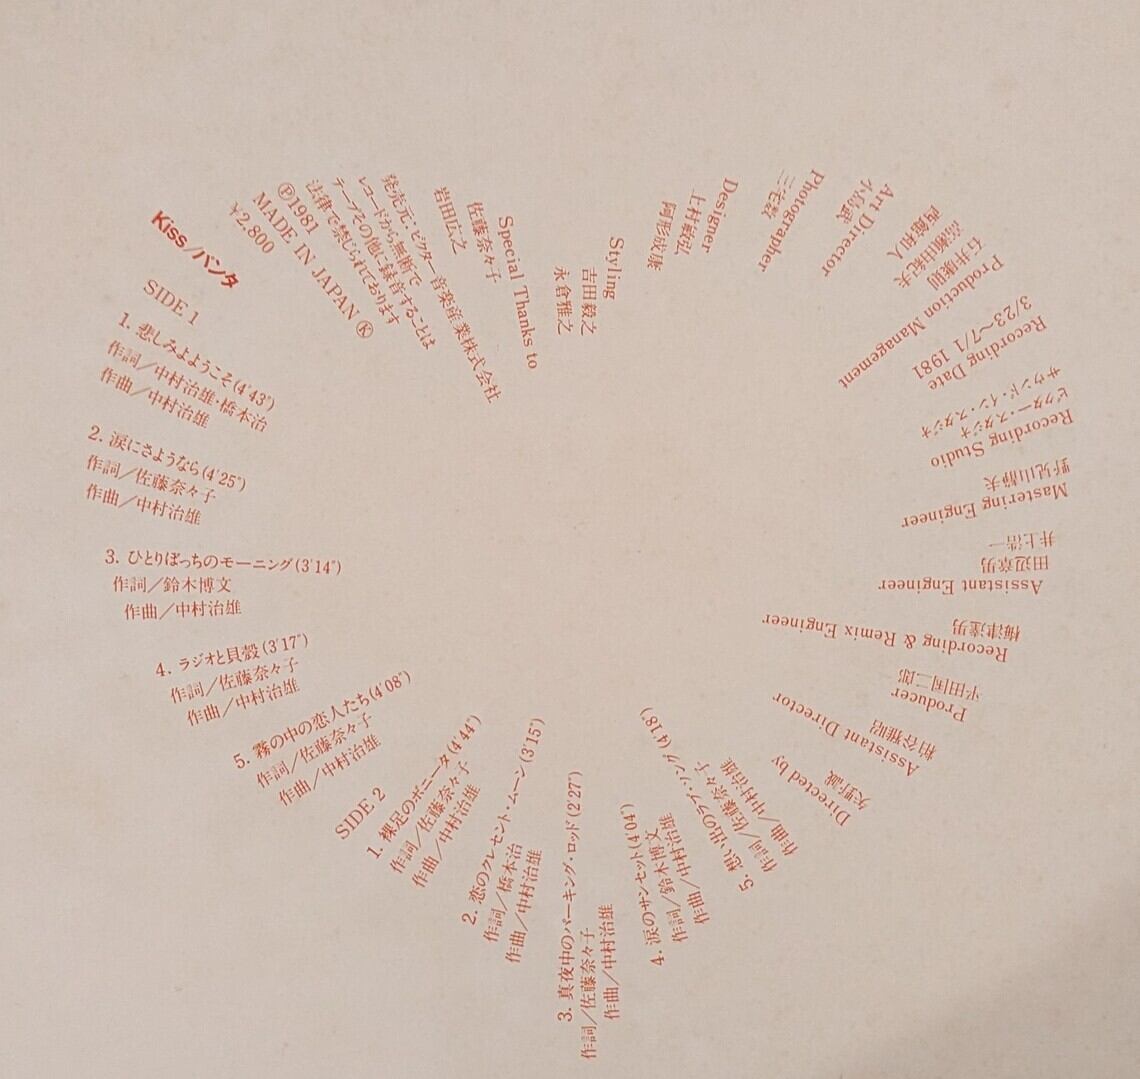 Kiss/パンタ
SIDE 1
1. 悲しみよようこそ(4'43")
作詞/中村治雄・橋本治
作曲/中村治雄
2. 涙にさようなら(4'25")
作詞/佐藤奈々子
作曲/中村治雄
3. ひとりぼっちのモーニング(3'14")
作詞/鈴木博文
作曲/中村治雄
4. ラジオと貝殻(3'17")
作詞/佐藤奈々子
作曲/中村治雄
5. 霧の中の恋人たち(4'08")
作詞/佐藤奈々子
作曲/中村治雄
SIDE 2
1. 裸足のボニータ(4'44")
作詞/佐藤奈々子
作曲/中村治雄
2. 恋のクレセント・ムーン(3'15")
作詞/橋本治
作曲/中村治雄
3. 真夜中のパーキング・ロッド(2'27")
作詞/佐藤奈々子
作曲/中村治雄
4. 涙のサンセット(4'04")
作詞/鈴木博文
作曲/中村治雄
5. 想い出のラブ・ソング(4'18")
作詞/佐藤奈々子
作曲/中村治雄
Directed by
矢野誠
Assistant Director
粕谷雅昭
Producer
平田国二郎
Recording & Remix Engineer
梅津達男
Assistant Engineer
田辺章男
井上浩一
Mastering Engineer
野見山静夫
Recording Studio
ビクター・スタジオ
サウンド・イン・スタジオ
Recording Date
3/23〜7/1 1981
Production Management
石井康則
高瀬由紀夫
西館利人
Art Director
小島武
Photographer
三宅毅
Designer
上村敏弘
阿形政康
Styling
吉田毅之
永倉雅之
Special Thanks to
佐藤奈々子
岩田広之
発売元・ビクター音楽産業株式会社
レコードから無断で
テープその他に録音することは
法律で禁じられております
Ⓟ1981
MADE IN JAPAN Ⓚ
¥2,800